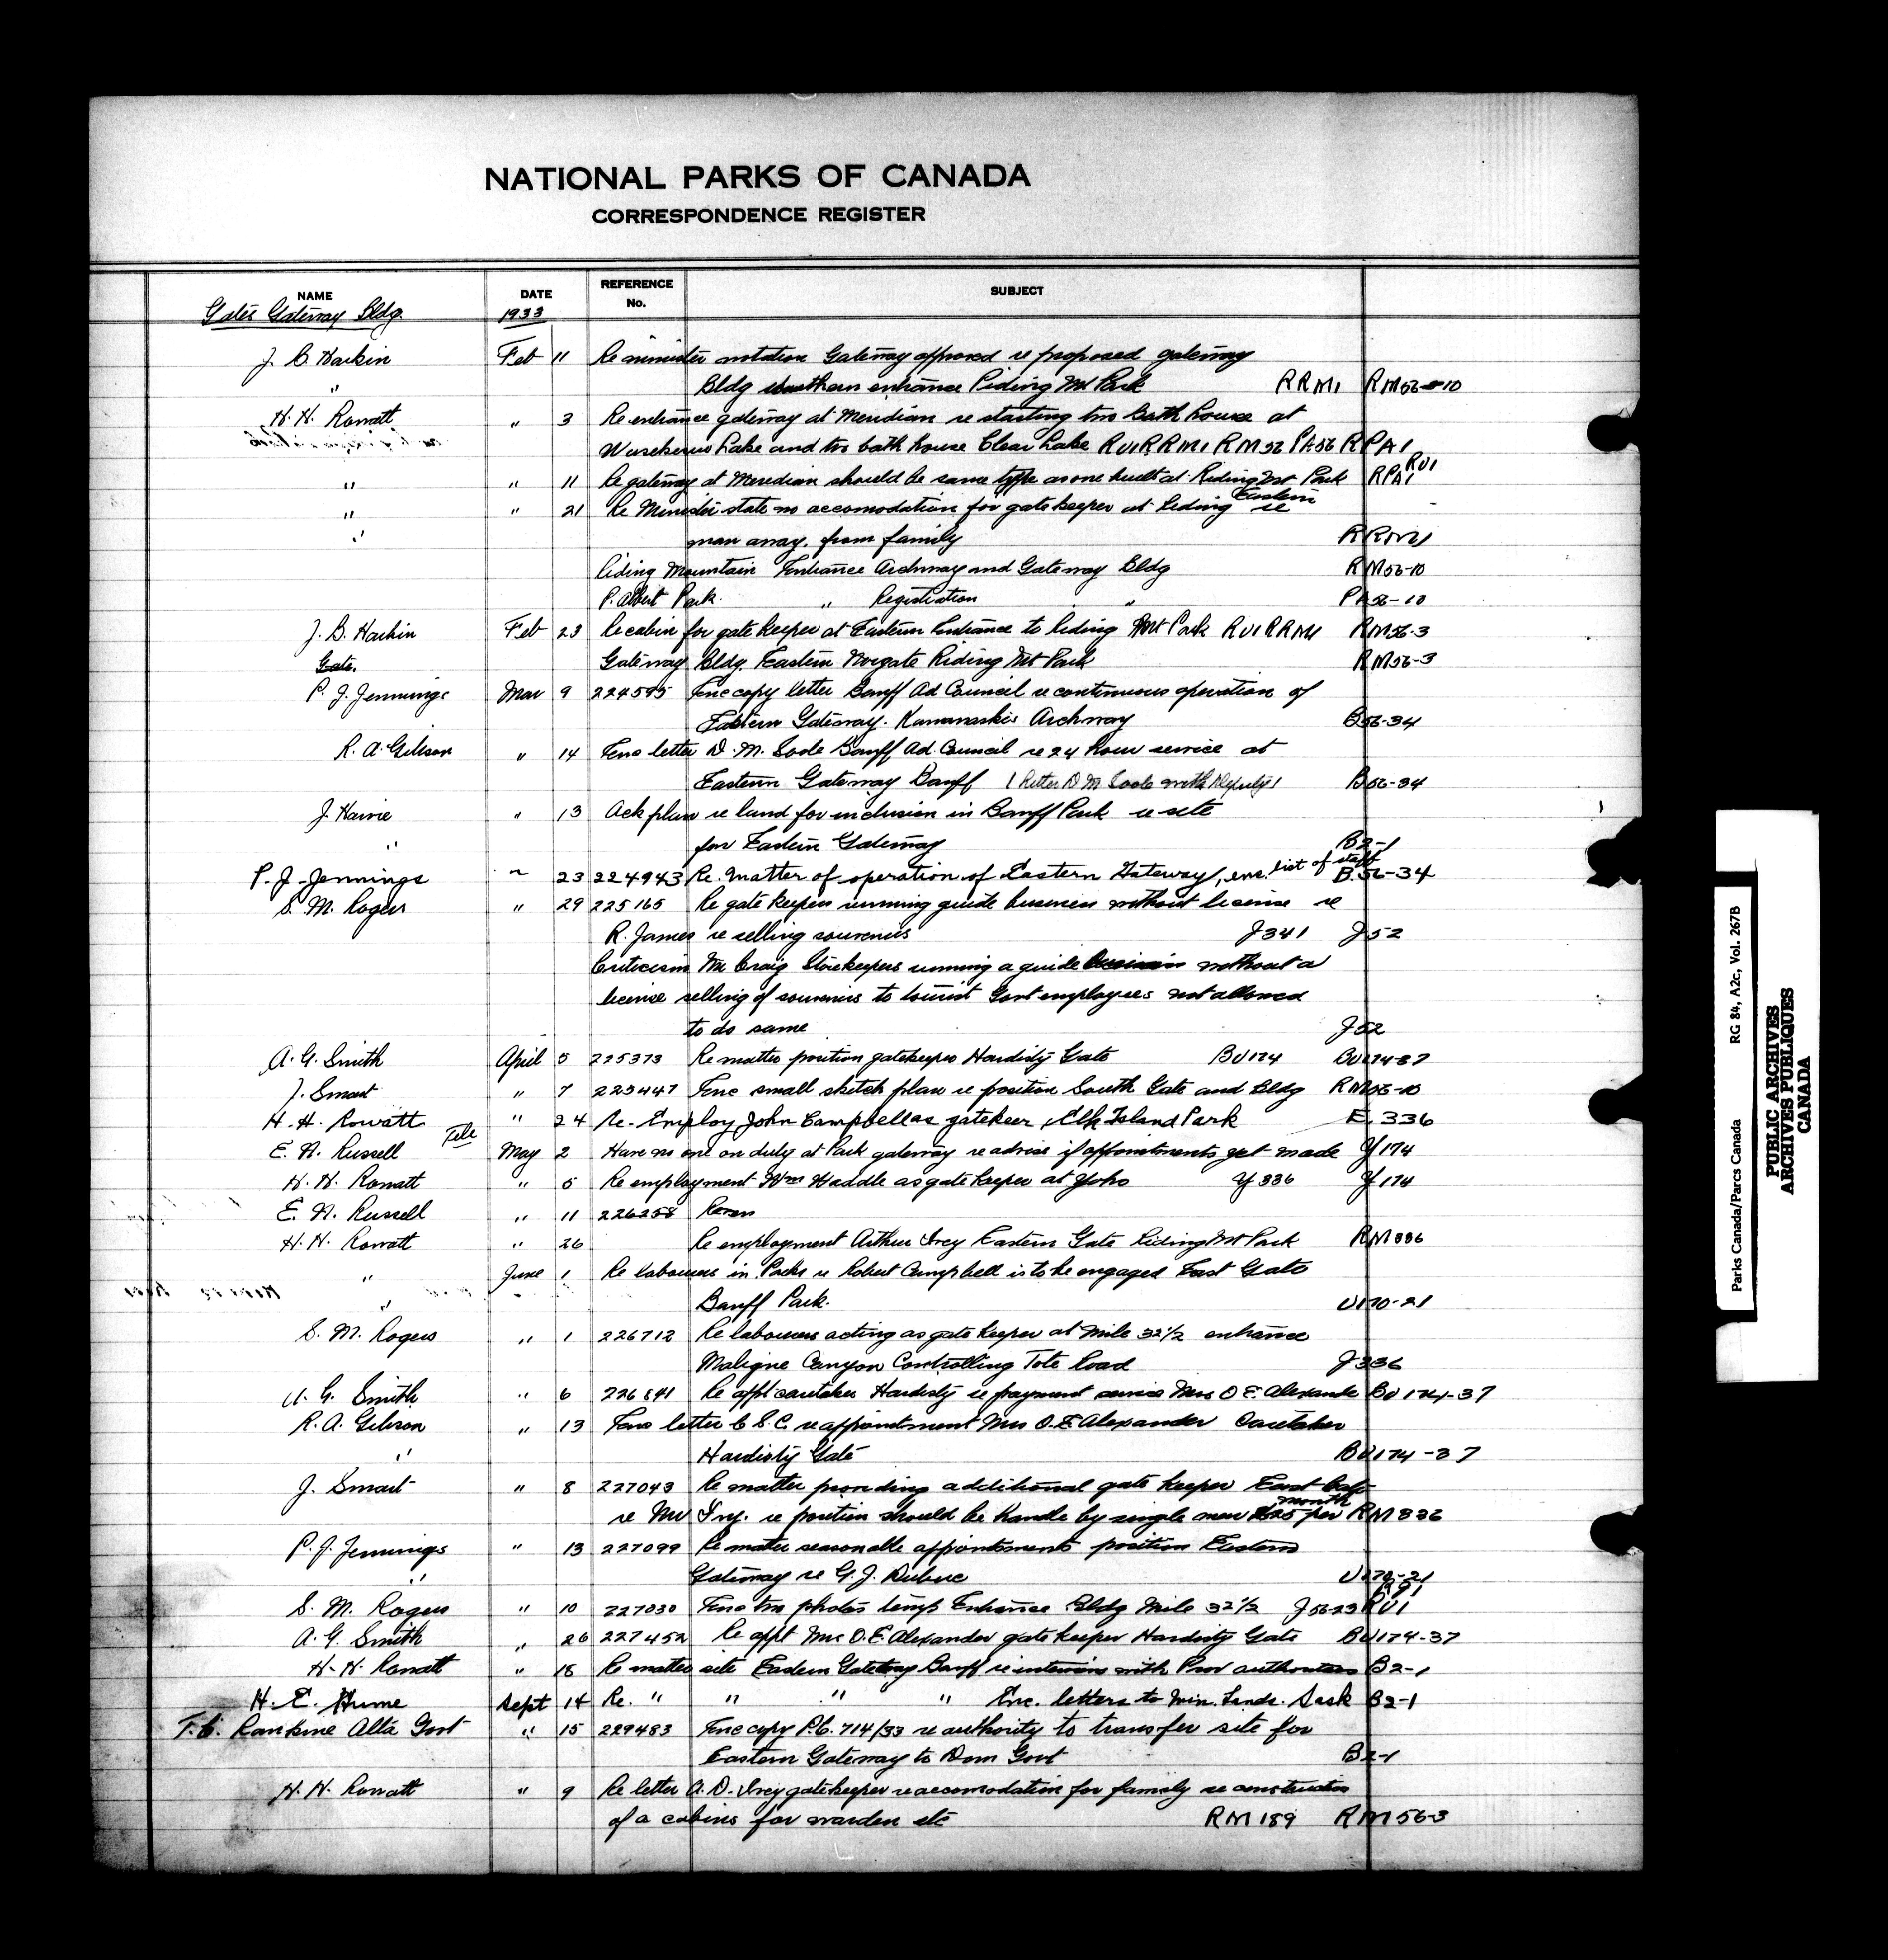 NATIONAL PARKS OF CANADA
CORRESPONDENCE REGISTER
NAME DATE REFERENCE No. SUBJECT
Gates Gateway Bldg. 1933
J. B. Harkin Feb 11 Re minister notation Gateway approved re proposed gateway
" Bldg southern entrance Riding Mt Park RRM1 RM56-10
H. H. Rowatt " 3 Re entrance gateway at Meridian re starting two bath house at
Waskesiu Lake and two bath house Clear Lake RU1 RRM1 RM56 PA56 RPA1
" " 11 Re gateway at Meridian should be same type as one built at Riding Mt Park RPA1 RU1
" " 21 Re Minister state no accomodation for gate keeper at Riding Eastern re
" man away from family RRM1
Riding Mountain Entrance Archway and Gateway Bldg RM56-10
P. Albert Park " Registration " PA56-10
J. B. Harkin Feb 23 Re cabin for gate keeper at Eastern Entrance to Riding Mt Park RU1 RRM1 RM56-3
Gate. Gateway Bldg. Eastern Norgate Riding Mt Park RM56-3
P. J. Jennings Mar 9 224595 Enc copy letter Banff Ad Council re continuous operation of
Eastern Gateway. Kananaskis Archway B56-34
R. A. Gibson " 14 Enc letter D. M. Soole Banff Ad. Council re 24 hour service at
Eastern Gateway Banff (letter D M Soole with Deputy) B56-34
J. Harvie " 13 Ack plan re land for inclusion in Banff Park re site
" for Eastern Gateway B2-1
P. J. Jennings " 23 224943 Re. matter of operation of Eastern Gateway, enc. list of staff B.56-34
S. M. Rogers " 29 225165 Re gate keepers running guide business without license re
R. James re selling souvenirs J341 J52
Criticism Mr Craig Storekeepers running a guide business without a
license selling of souvenirs to tourist Govt employees not allowed
to do same J52
A. G. Smith April 5 225373 Re matter position gatekeeper Hardisty Gate BU174 BU174-37
J. Smart " 7 225447 Enc small sketch plan re position South Gate and Bldg RM56-10
H. H. Rowatt " 24 Re. Employ John Campbell as gatekeer, Elk Island Park E. 336
E. N. Russell Tele May 2 Have no one on duty at Park gateway re advise if appointments get made Y174
H. H. Rowatt " 5 Re employment Wm Waddle as gate keeper at Yoho Y336 Y174
E. N. Russell " 11 226258
H. H. Rowatt " 26 Re employment Arthur Ivey Eastern Gate Riding Mt Park RM336
" June 1 Re labourers in Parks re Robert Campbell is to be engaged East Gate
" Banff Park. U170-21
S. M. Rogers " 1 226712 Re labourers acting as gate keeper at Mile 32 1/2 entrance
Maligne Canyon Controlling Tote Road J336
A. G. Smith " 6 226841 Re appt caretaker Hardisty re payment service Mrs O. E. Alexander BU174-37
R. A. Gibson " 13 Enc letter C.S.C. re appointment Mrs O. E. Alexander Caretaker
" Hardisty Gate BU174-37
J. Smart " 8 227043 Re matter providing additional gate keeper East Gate
re Mr Ivey. re position should be handle by single man $25 per month RM336
P. J. Jennings " 13 227099 Re matter seasonable appointments position Eastern
" Gateway re G. J. Dubuc U170-21
S. M. Rogers " 10 227030 Enc two photos temp Entrance Bldg Mile 32 1/2 J56-23 RJ1 RU1
A. G. Smith " 26 227452 Re appt Mrs O. E. Alexander gate keeper Hardisty Gate BU174-37
H. H. Rowatt " 15 Re matter site Eastern Gateway Banff re interview with Prov authorities B2-1
H. E. Hume Sept 14 Re. " " " " Enc. letters to Min. Lands. Sask B2-1
T. C. Rankine Alta Govt " 15 229483 Enc copy P.C. 714/33 re authority to transfer site for
Eastern Gateway to Dom Govt B2-1
H. H. Rowatt " 9 Re letter A. D. Ivey gatekeeper re accomodation for family re construction
of a cabins for warden etc RM189 RM56-3
Parks Canada/Parcs Canada RG 84, A2c, Vol. 267B
PUBLIC ARCHIVES
ARCHIVES PUBLIQUES
CANADA